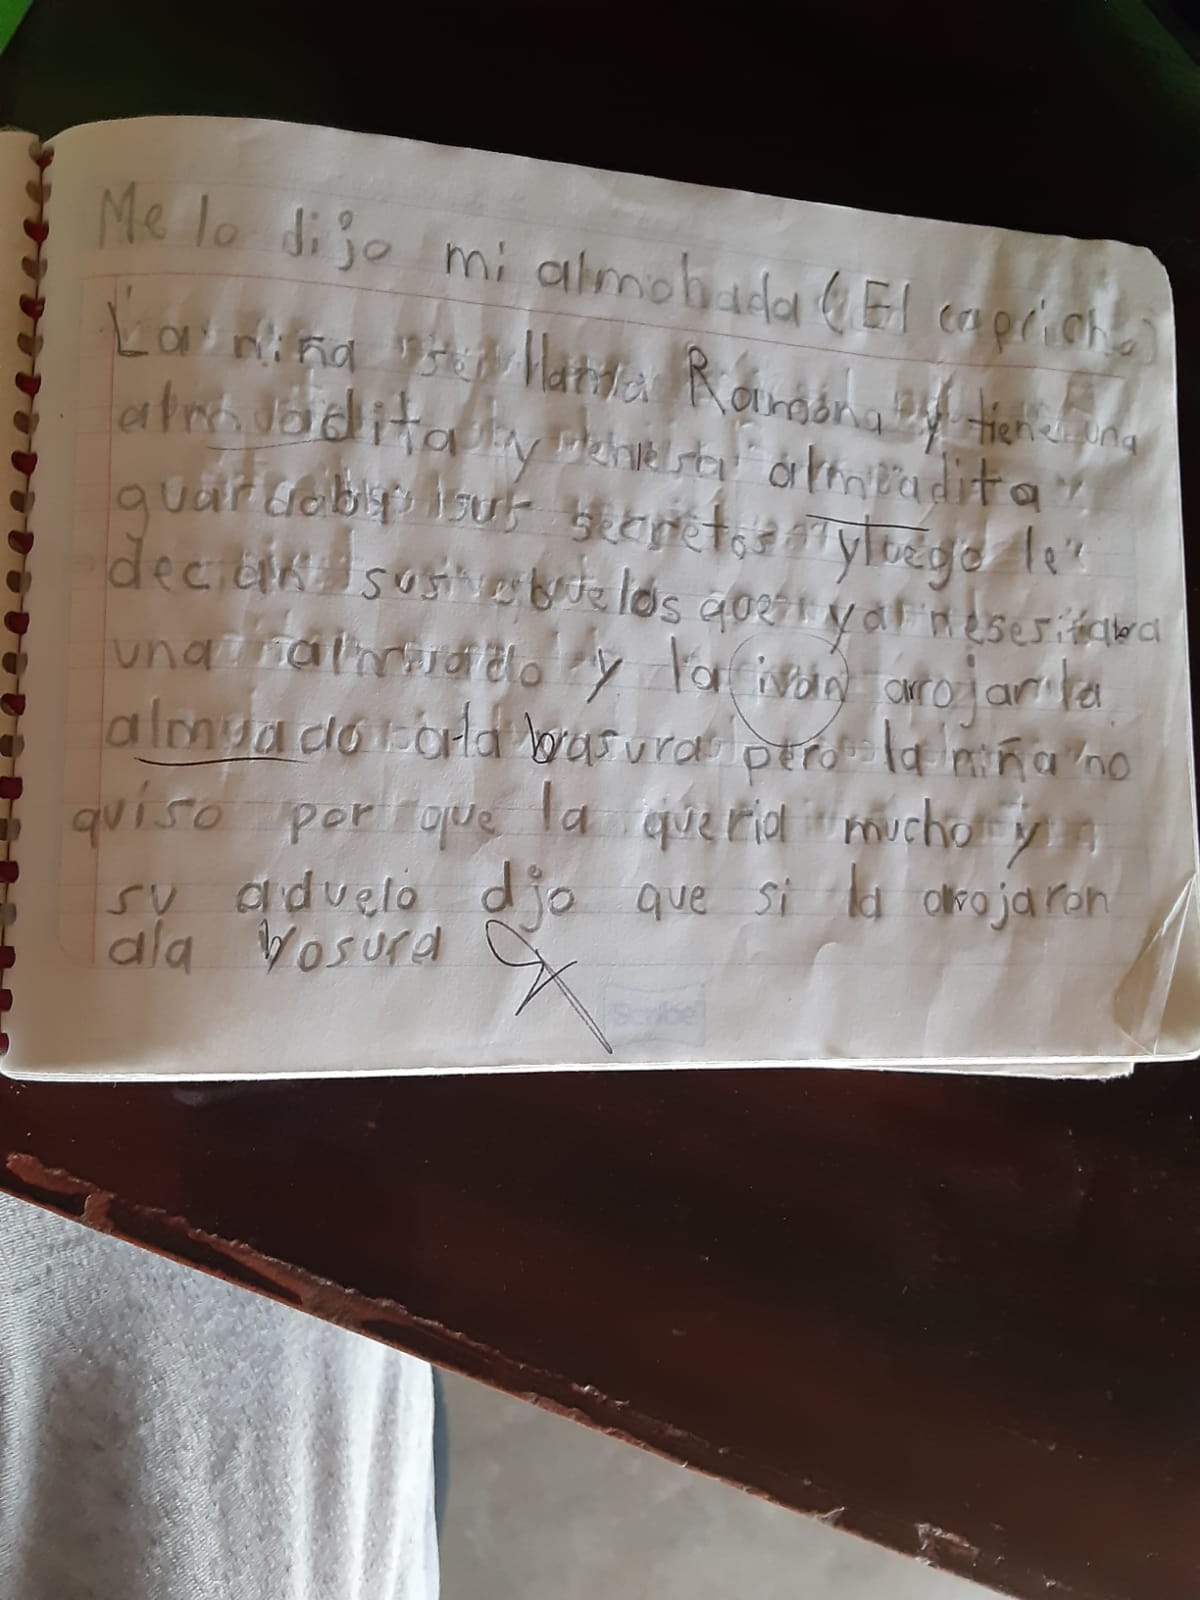 Me lo dijo mi almohada (El capricho)
La niña se llama Ramona y tiene una
almuadita y en esa almuadita
guardaba sus secretos y luego le
decian sus abuelos que ya nesesitaba
una almuada y la ivan arrojar la
almuada ala basura pero la niña no
quiso por que la queria mucho y
su aduelo djo que si la arojaron
ala basura
Scribe